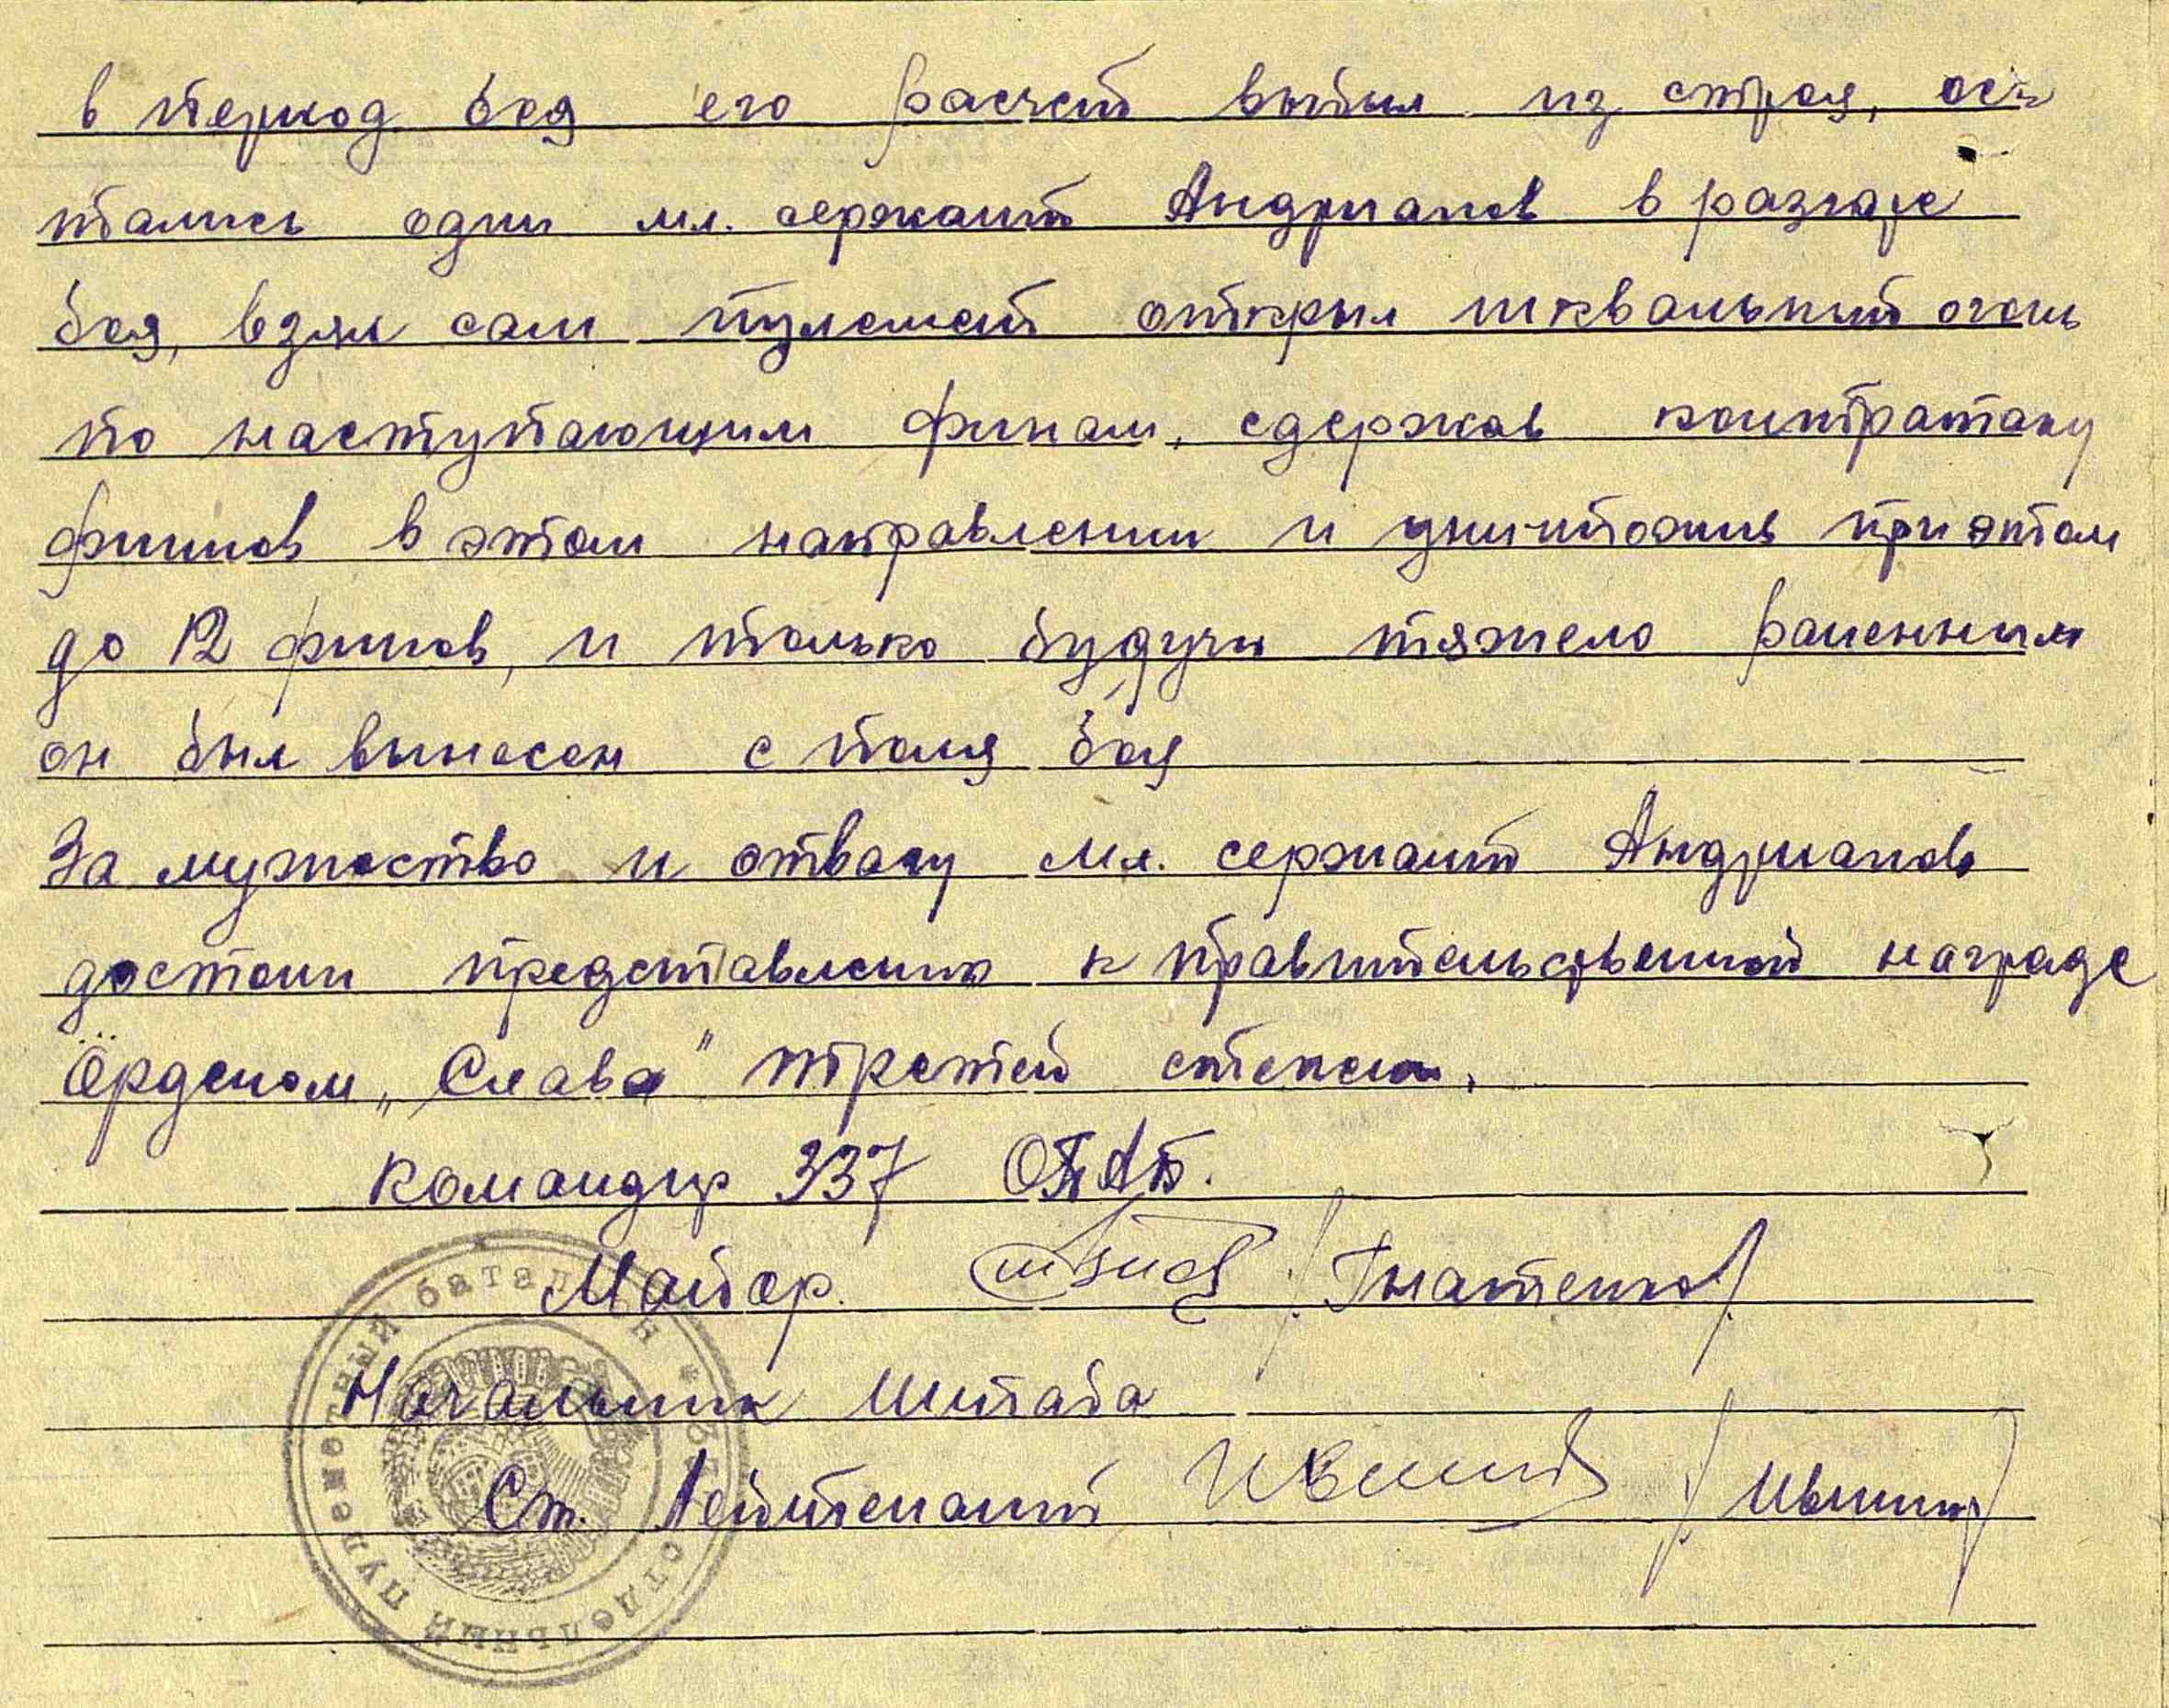 в период боя его расчет выбыл из строя, ос-
тались один мл. сержант Андрианов в разгаре
боя, взял сам пулемет открыл шквальный огонь
по наступающим финам, сдержав контратаку
финнов в этом направлении и уничтожив при этом
до 12 финов, и только будучи тяжело раненным
он был вынесен с поля боя
За мужество и отвагу мл. сержант Андрианов
достоин представления к правительственной награде
Орденом „Слава" третей степени.
командир 337 ОПАБ.
Майор. /Гнатенко/
Начальник Штаба
Ст. Лейтенант /Ившин/
отдельный пулеметный батальон